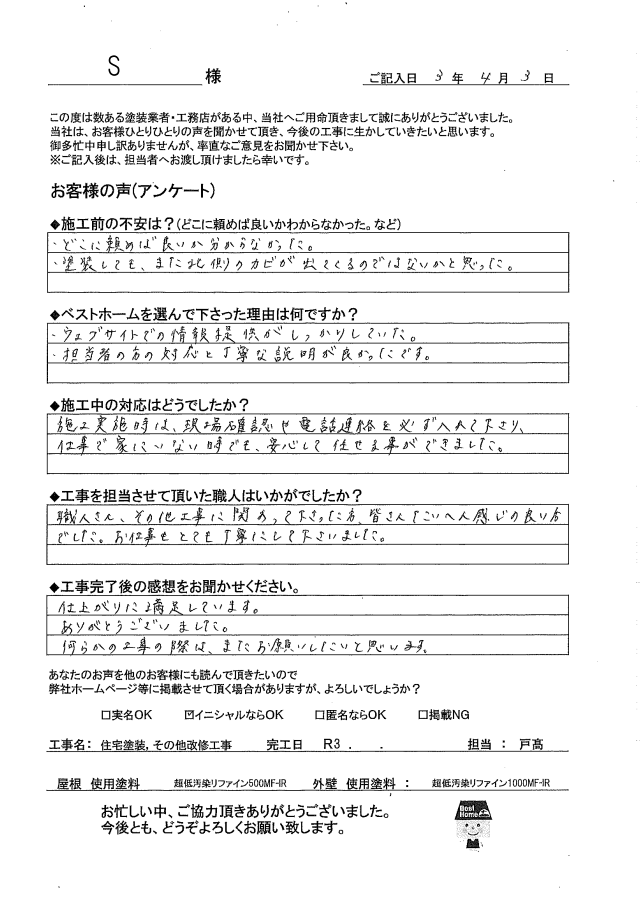 S 様 ご記入日 3 年 4 月 3 日
この度は数ある塗装業者・工務店がある中、当社へご用命頂きまして誠にありがとうございました。
当社は、お客様ひとりひとりの声を聞かせて頂き、今後の工事に生かしていきたいと思います。
御多忙中申し訳ありませんが、率直なご意見をお聞かせ下さい。
※ご記入後は、担当者へお渡し頂けましたら幸いです。
お客様の声(アンケート)
◆施工前の不安は?(どこに頼めば良いかわからなかった。など)
・どこに頼めば良いか分からなかった。
・塗装しても、また北側のカビが出てくるのではないかと思った。
◆ベストホームを選んで下さった理由は何ですか?
・ウェブサイトでの情報提供がしっかりしていた。
・担当者の方の対応と丁寧な説明が良かったです。
◆施工中の対応はどうでしたか?
施工実施時は、現場確認や電話連絡を必ず入れて下さり、
仕事で家にいない時でも、安心して任せる事ができました。
◆工事を担当させて頂いた職人はいかがでしたか?
職人さん、その他工事に関わって下さった方、皆さんすごい人感じの良い方
でした。お仕事もとても丁寧にして下さいました。
◆工事完了後の感想をお聞かせください。
仕上がりに満足しています。
ありがとうございました。
何らかの工事の際は、またお願いしたいと思います。
あなたのお声を他のお客様にも読んで頂きたいので
弊社ホームページ等に掲載させて頂く場合がありますが、よろしいでしょうか?
□実名OK ☑イニシャルならOK □匿名ならOK □掲載NG
工事名: 住宅塗装,その他改修工事 完工日 R3 . . 担当 : 戸髙
屋根 使用塗料 超低汚染リファイン500MF-IR 外壁 使用塗料 : 超低汚染リファイン1000MF-IR
お忙しい中、ご協力頂きありがとうございました。
今後とも、どうぞよろしくお願い致します。
Best Home